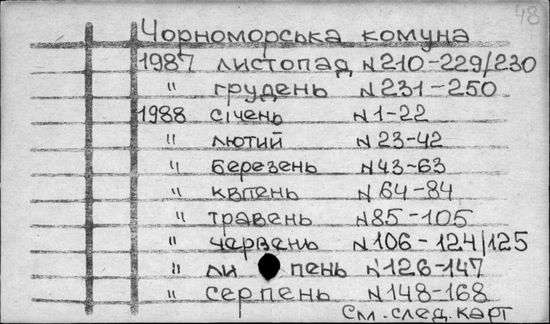 48
Чорноморська комуна
1987 листопад N210-229/230
" грудень N231-250
1988 січень N1-22
" лютий N23-42
" березень N43-63
" квпень N64-84
" травень N85-105
" червень N106-124/125
" ли пень N126-147
" серпень N148-168
См. след. карт